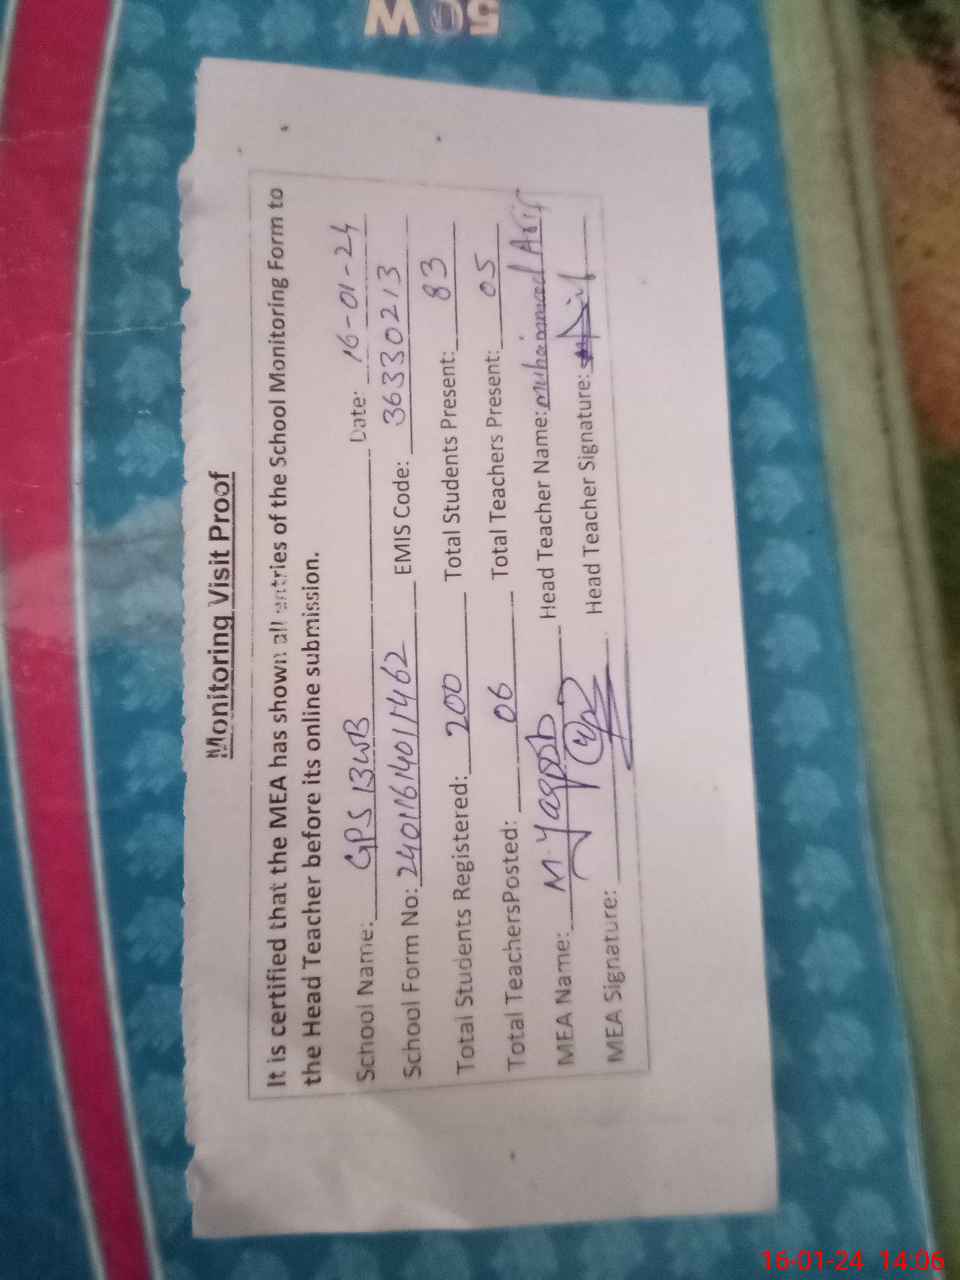 50W
Monitoring Visit Proof
It is certified that the MEA has shown all entries of the School Monitoring Form to
the Head Teacher before its online submission.
School Name: GPS 13WB Date: 16-01-24
School Form No: 240116140111462 EMIS Code: 36330213
Total Students Registered: 200 Total Students Present: 83
Total TeachersPosted: 06 Total Teachers Present: 05
MEA Name: M. Yaqoob Head Teacher Name: Muhammad Arif
MEA Signature: Head Teacher Signature: Arif
16-01-24 14:06